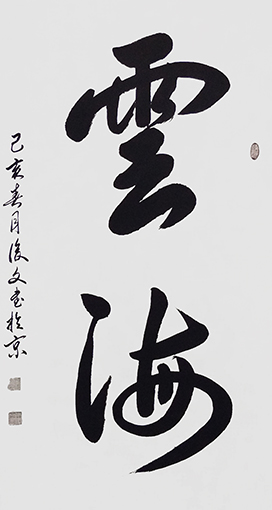 雲海
己亥春月文書於京